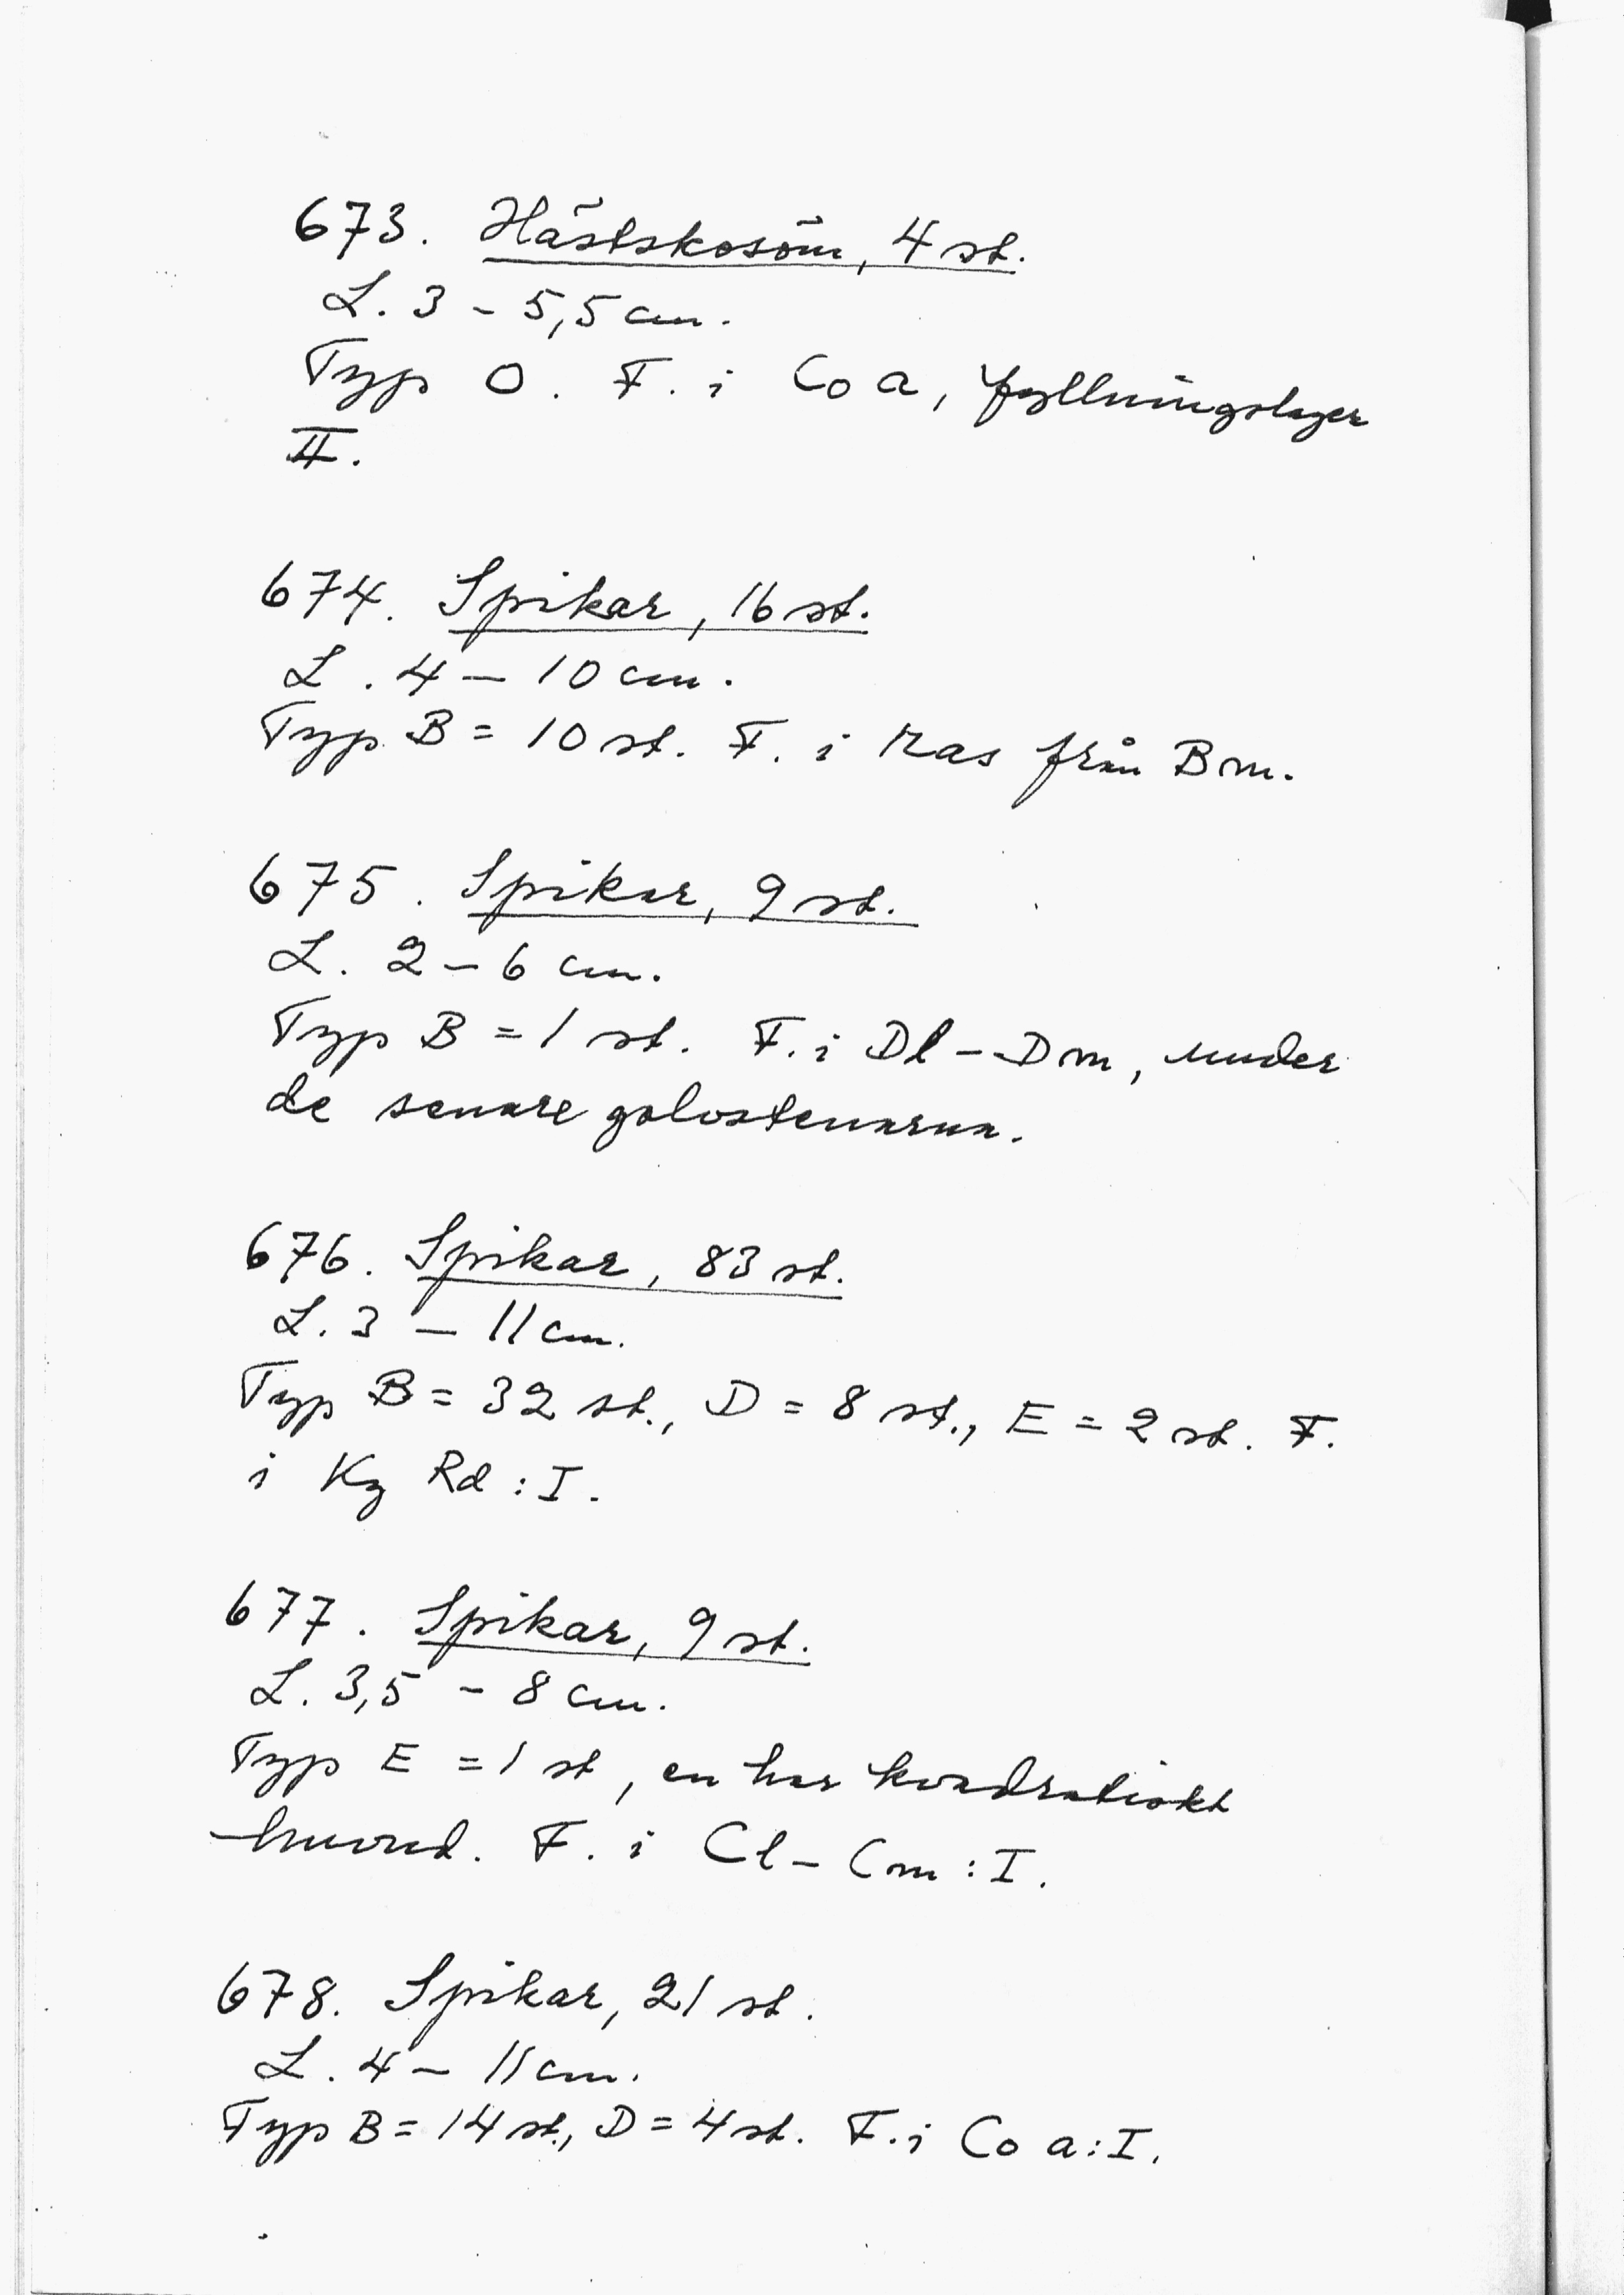 673. Hästskosöm, 4 st.
L. 3 - 5,5 cm.
Typ O. F. i Co a, fyllningslager
II.
674. Spikar, 16 st.
L. 4 - 10 cm.
Typ B = 10 st. F. i ras från Bm.
675. Spikar, 9 st.
L. 2 - 6 cm.
Typ B = 1 st. F. i Dl - Dm, under
de senare golvstenarna.
676. Spikar, 83 st.
L. 3 - 11 cm.
Typ B = 32 st., D = 8 st., E = 2 st. F.
i Kg Rd : I.
677. Spikar, 9 st.
L. 3,5 - 8 cm.
Typ E = 1 st, en har kvadratiskt
huvud. F. i Cl - Cm : I.
678. Spikar, 21 st.
L. 4 - 11 cm.
Typ B = 14 st., D = 4 st. F. i Co a : I.